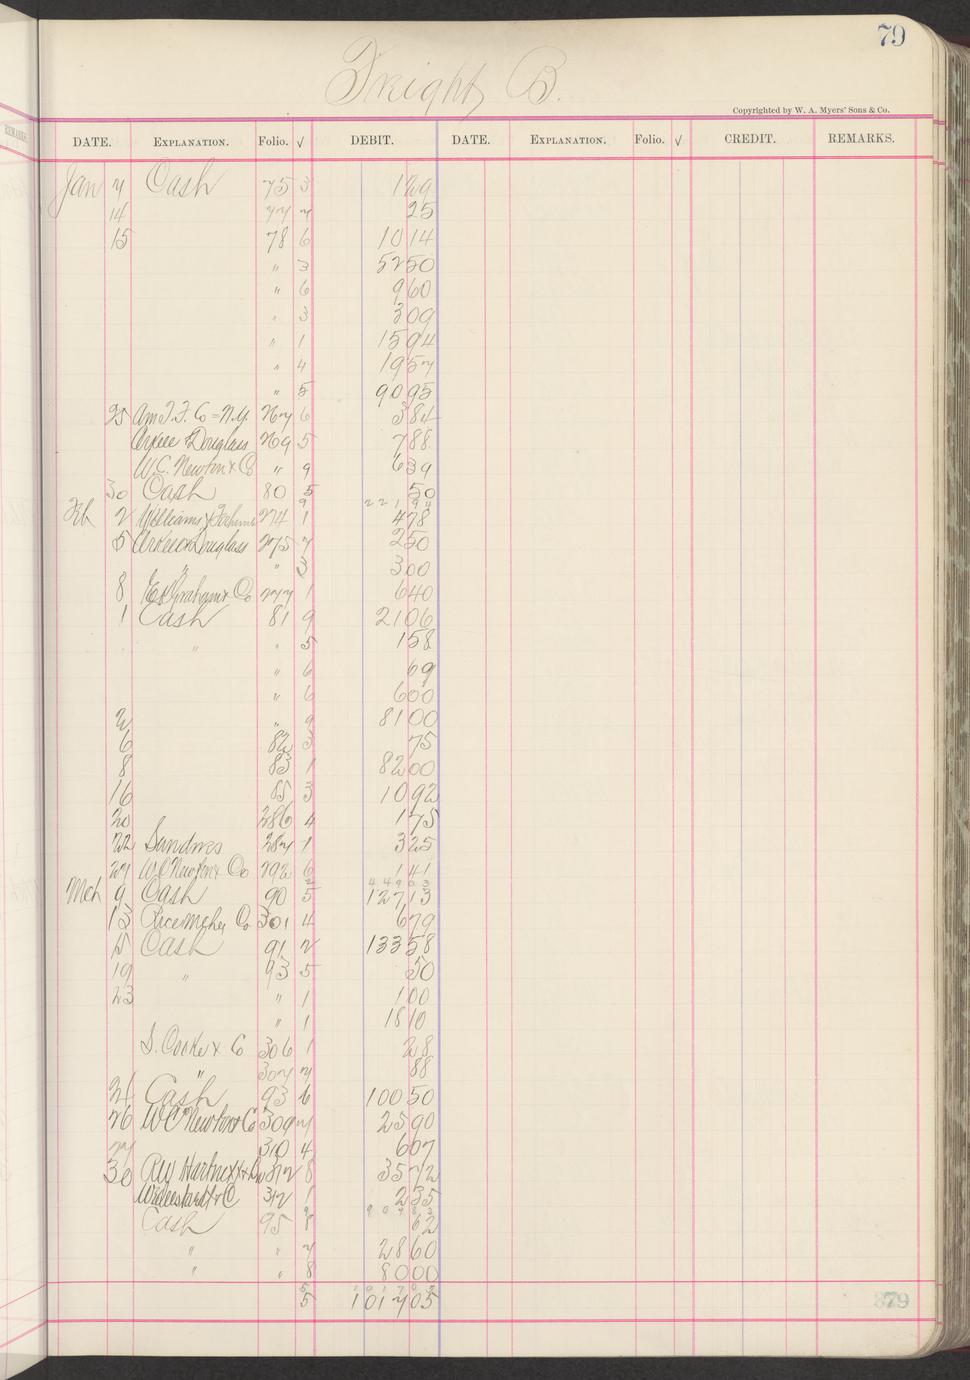 79
Freight B.
Copyrighted by W. A. Myers' Sons & Co.
REMARKS
DATE. EXPLANATION. Folio. √ DEBIT. DATE. EXPLANATION. Folio. √ CREDIT. REMARKS.
Jan 7 Cash 75 3 1 29
14 77 7 25
15 78 6 10 14
" 3 52 50
" 6 9 60
" 3 3 09
" 1 15 94
" 4 19 57
" 5 90 95
25 Am T. F. Co = N.Y 267 6 3 84
& Douglass 269 5 7 88
W.C. Newton & Co " 9 6 39
30 Cash 80 5 50
9 2 2 1 9 4
Feb 2 Williams & 274 1 4 78
5 & Douglass 275 7 2 50
" " 3 3 00
8 Graham & Co 277 1 6 40
1 Cash 81 9 21 06
" " 5 1 58
" 6 69
" 6 6 00
2 " 9 81 00
6 82 3 75
8 83 1 82 00
16 85 3 10 92
20 286 4 1 75
22 Sandries 287 1 3 25
27 W C Newton & Co 292 6 1 41
2 4 4 9 0 3
Mch 9 Cash 90 5 127 13
13 Co 301 4 6 79
15 Cash 91 2 133 58
19 " 93 5 50
23 " 1 1 00
" 1 18 10
S. Cooke & Co 306 1 28
" 307 7 88
24 Cash 93 6 100 50
26 W C Newton & Co 309 7 25 90
27 310 4 6 07
30 312 8 35 72
312 1 2 35
9 9 0 7 8 3
Cash 95 8 62
" " 7 28 60
" " 8 80 00
5 1 0 1 7 0 5
5 1017 05
879